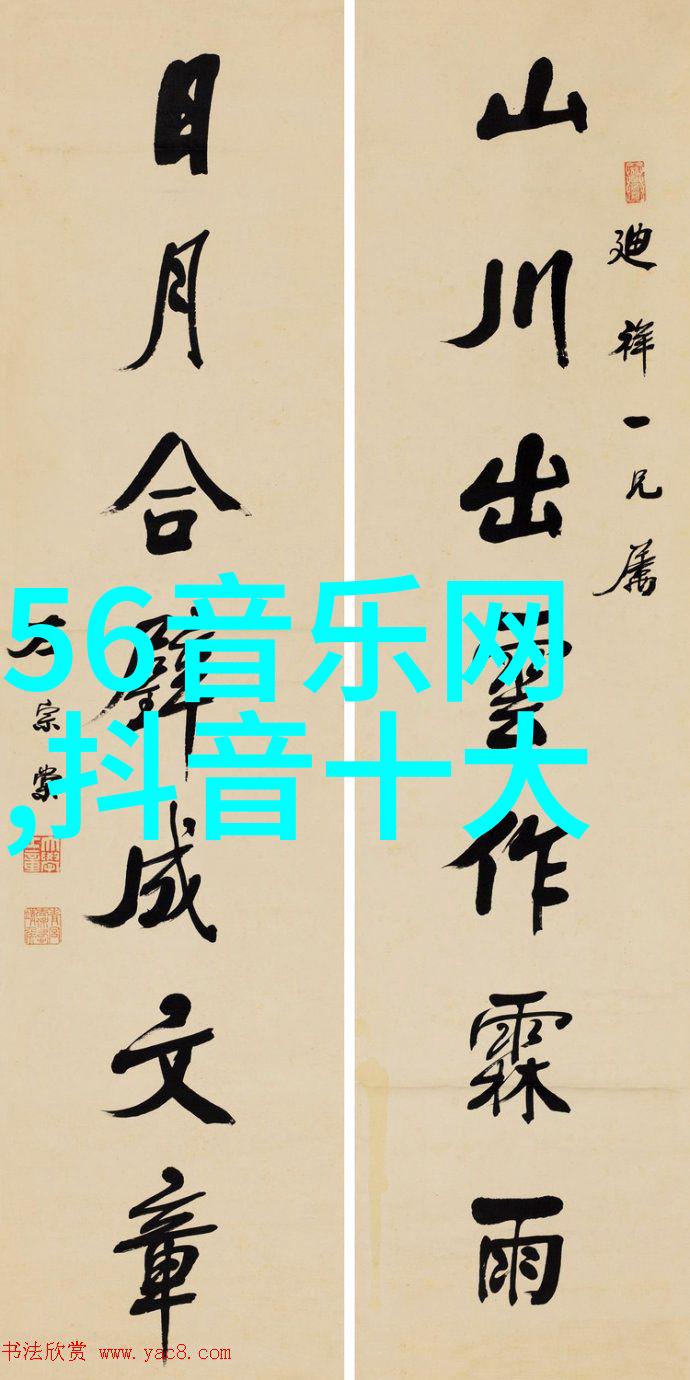 廸祥一兄属
山川出雲作霖雨
日月合璧成文章
左宗棠
56音乐网
,抖音十大
书法欣赏 www.yac8.com